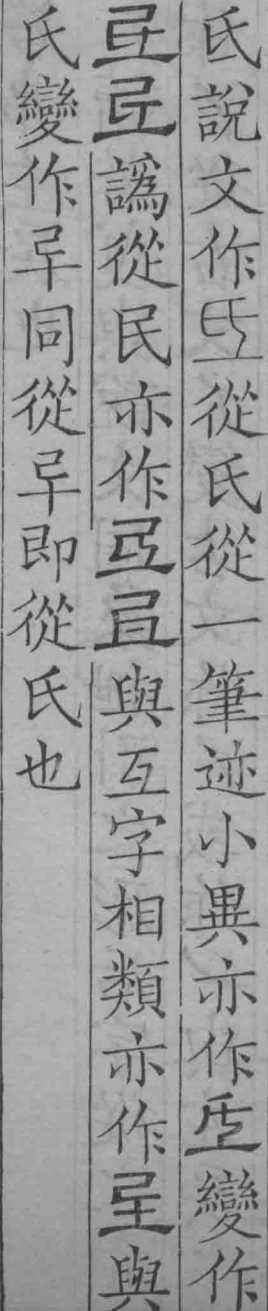 氐說文作氐從氏從一筆迹小異亦作𠂩變作
譌從民亦作與互字相類亦作与與
氏變作𢎨同從𢎨即從氏也